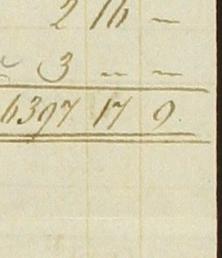 2 16 —
3 — —
6397 17 9